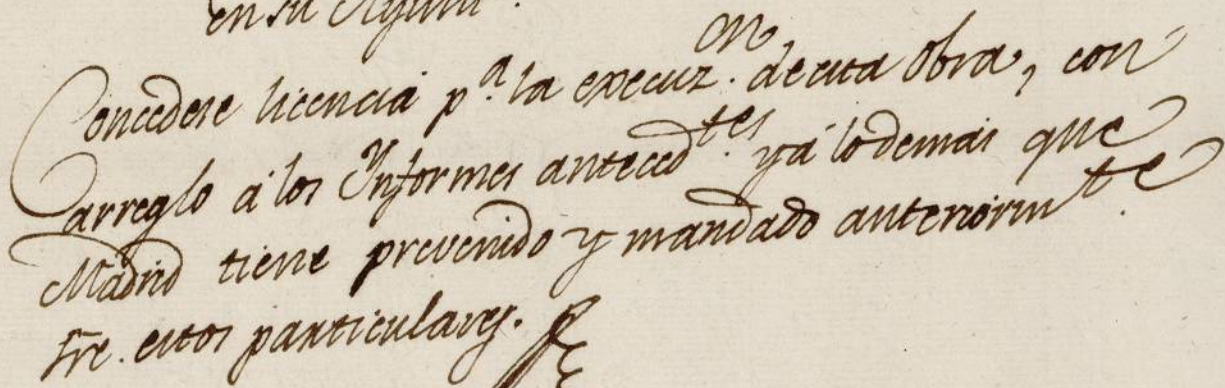 en su Ayunt.
Concedese licencia p.ª la execuz.on de esta obra, con
arreglo á los Ynformes anteced.tes y á lo demas que
Madrid tiene prevenido y mandado anteriorm.te
sre. estos particulares.